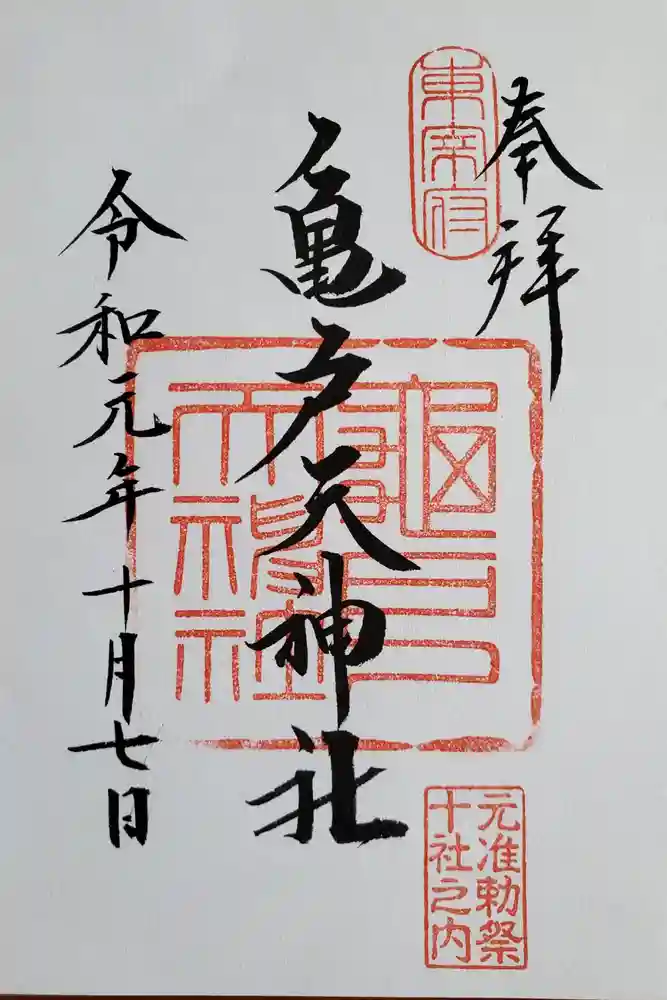 奉拝
東宰府
亀戸天神社
亀戸
天神社
元准勅祭
十社之内
令和元年十月七日